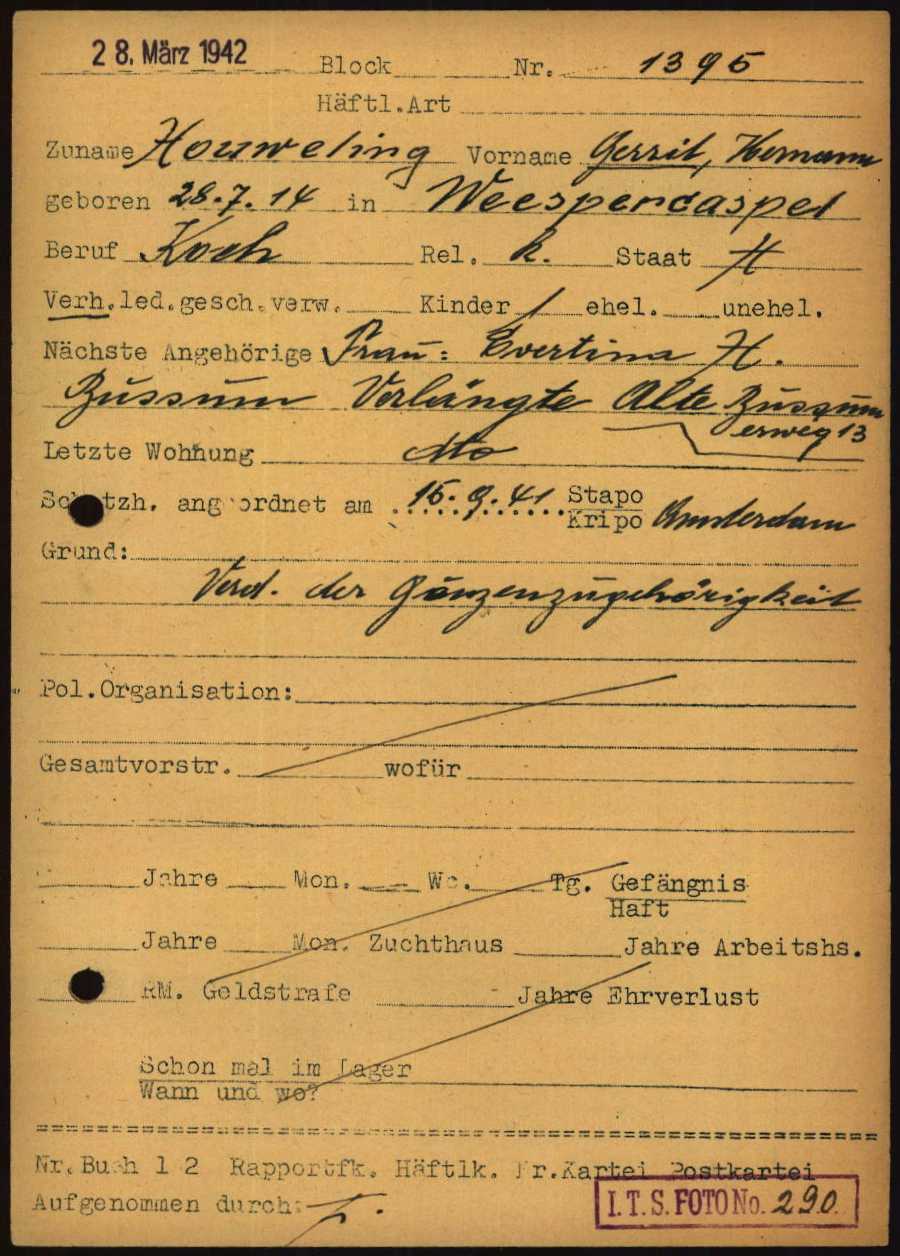 28. März 1942 Block Nr. 1395
Häftl.Art
Zuname Houweling Vorname Gerrit, Hermann
geboren 28.7.14 in Weespercaspel
Beruf Koch Rel. k. Staat H
Verh.led.gesch.verw. Kinder 1 ehel. unehel.
Nächste Angehörige Frau: Evertina H.
Bussum Verlängte Alte Bussum
erweg 13
Letzte Wohnung dto
Schutzh. angeordnet am 15.9.41 Stapo
Kripo Amsterdam
Grund:
Verd. der
Pol.Organisation:
Gesamtvorstr. wofür
Jahre Mon. Wo. Tg. Gefängnis
Haft
Jahre Mon. Zuchthaus Jahre Arbeitshs.
RM. Geldstrafe Jahre Ehrverlust
Schon mal im Lager
Wann und wo?
Nr.Buch 1 2 Rapportfk. Häftlk. Fr.Kartei Postkartei
Aufgenommen durch:
I.T.S. FOTO No. 290